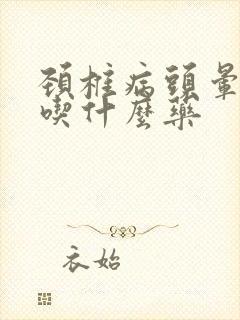 頚椎病頭暈
喫什麼藥
衣始